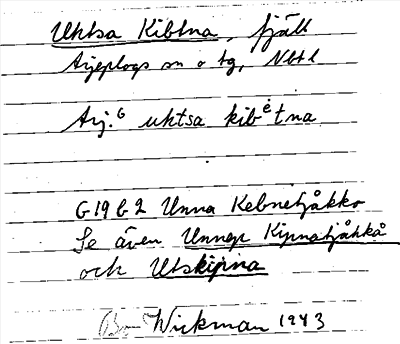 Uktsa Kibtna, fjäll
Arjeplogs sn o tg, Nbtl
Arj. G uktsa kibėtna
G 19 G 2 Unna Kebnetjåkko
Se även Unnep Kipnatjåkkå
och Utskipna
Bo Wickman 1943